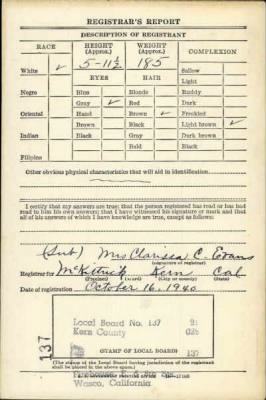 REGISTRAR'S REPORT
DESCRIPTION OF REGISTRANT
RACE HEIGHT (Approx.) WEIGHT (Approx.) COMPLEXION
White ✓ 5-11½ 185 Sallow
EYES HAIR Light
Negro Blue Blonde Ruddy
Gray ✓ Red Dark
Oriental Hazel Brown ✓ Freckled
Brown Black Light brown ✓
Indian Black Gray Dark brown
Bald Black
Filipino
Other obvious physical characteristics that will aid in identification
I certify that my answers are true; that the person registered has read or has had
read to him his own answers; that I have witnessed his signature or mark and that
all of his answers of which I have knowledge are true, except as follows:
(Sub) Mrs Clarissa C. Evans
(Signature of registrar)
Registrar for McKittrick Kern Cal
(Precinct) (Ward) (City or county) (State)
Date of registration October 16, 1940
Local Board No. 137
Kern County 029
137
137
(STAMP OF LOCAL BOARD)
(The stamp of the Local Board having jurisdiction of the registrant
shall be placed in the above space.)
Wasco, California